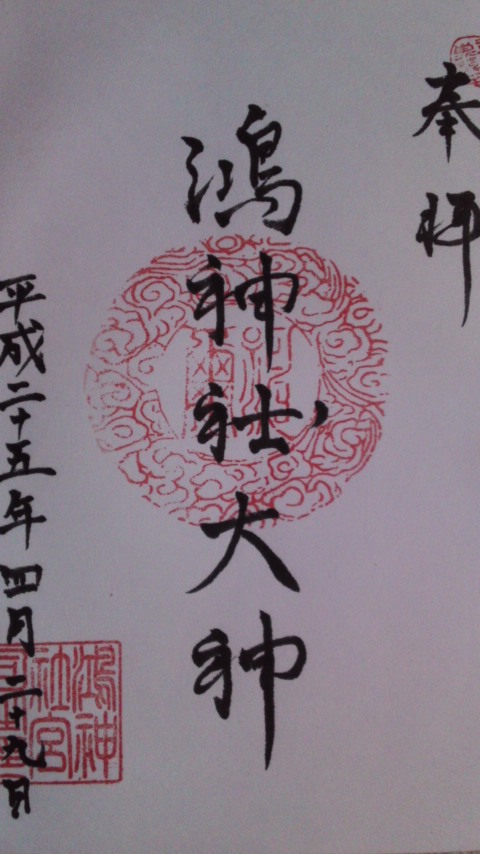 奉拝
鴻神社大神
平成二十五年四月二十九日
鴻神
社宮